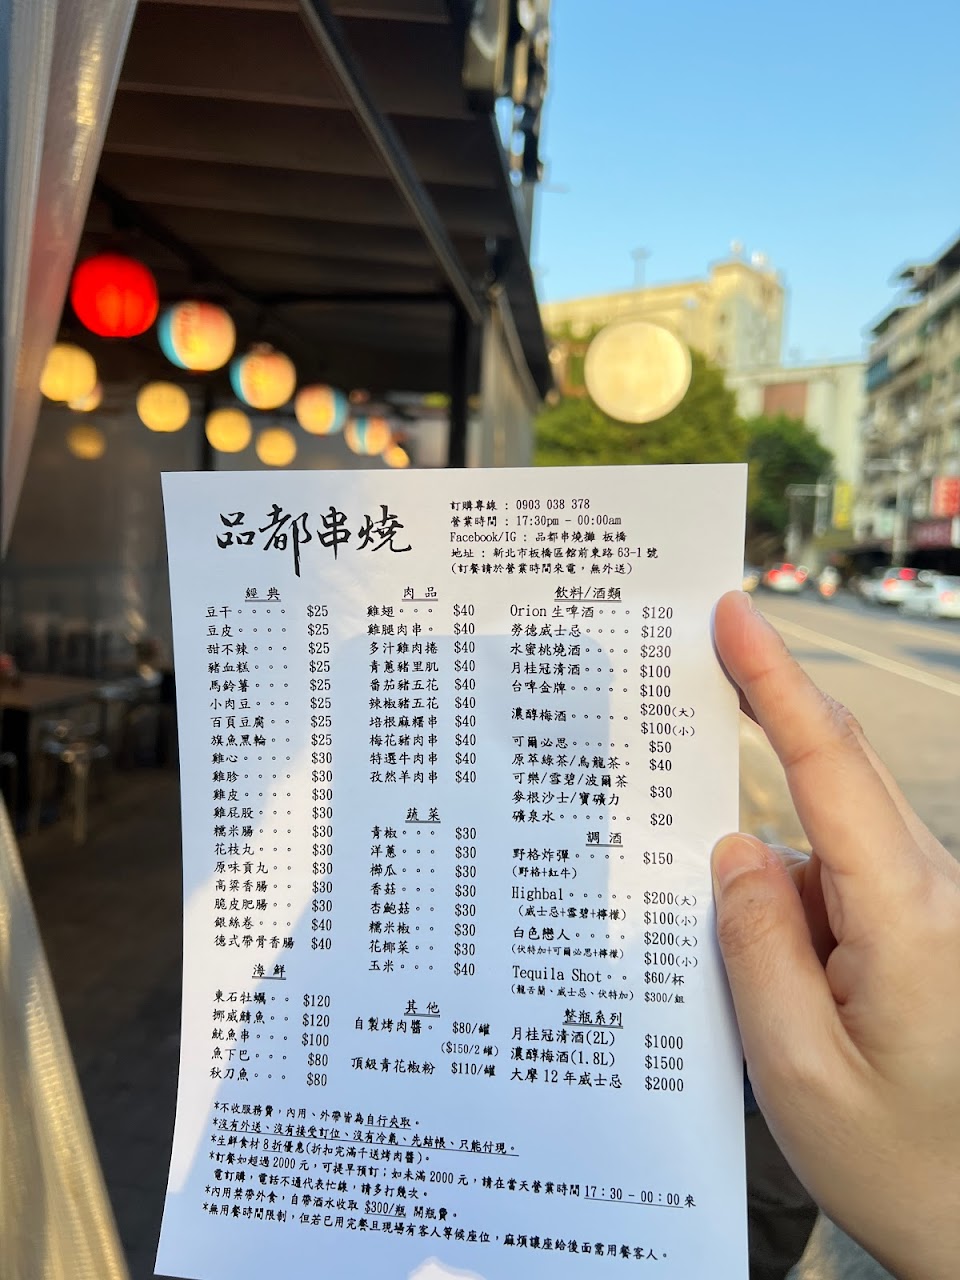 品都串燒
訂購專線 : 0903 038 378
營業時間 : 17:30pm - 00:00am
Facebook/IG : 品都串燒攤 板橋
地址 : 新北市板橋區館前東路 63-1 號
(訂餐請於營業時間來電，無外送)
經典
豆干。。。。 $25
豆皮。。。。 $25
甜不辣。。。 $25
豬血糕。。。 $25
馬鈴薯。。。 $25
小肉豆。。。 $25
百頁豆腐。。 $25
旗魚黑輪。。 $25
雞心。。。。 $30
雞胗。。。。 $30
雞皮。。。。 $30
雞屁股。。。 $30
糯米腸。。。 $30
花枝丸。。。 $30
原味貢丸。。 $30
高粱香腸。。 $30
脆皮肥腸。。 $30
銀絲卷。。。 $40
德式帶骨香腸 $40
海鮮
東石牡蠣。。 $120
挪威鯖魚。。 $120
魷魚串。。。 $100
魚下巴。。。 $80
秋刀魚。。。 $80
肉品
雞翅。。。 $40
雞腿肉串。 $40
多汁雞肉捲 $40
青蔥豬里肌 $40
番茄豬五花 $40
辣椒豬五花 $40
培根麻糬串 $40
梅花豬肉串 $40
特選牛肉串 $40
孜然羊肉串 $40
蔬菜
青椒。。。 $30
洋蔥。。。 $30
櫛瓜。。。 $30
香菇。。。 $30
杏鮑菇。。 $30
糯米椒。。 $30
花椰菜。。 $30
玉米。。。 $40
其他
自製烤肉醬。 $80/罐
($150/2 罐)
頂級青花椒粉 $110/罐
飲料/酒類
Orion 生啤酒。。。 $120
勞德威士忌。。。。 $120
水蜜桃燒酒。。。。 $230
月桂冠清酒。。。。 $100
台啤金牌。。。。。 $100
濃醇梅酒。。。。。 $200(大)
$100(小)
可爾必思。。。。。 $50
原萃綠茶/烏龍茶。 $40
可樂/雪碧/波爾茶
麥根沙士/寶礦力 $30
礦泉水。。。。。。 $20
調酒
野格炸彈。。。。 $150
(野格+紅牛)
Highbal。。。。。 $200(大)
(威士忌+雪碧+檸檬) $100(小)
白色戀人。。。。 $200(大)
(伏特加+可爾必思+檸檬) $100(小)
Tequila Shot。。 $60/杯
(龍舌蘭、威士忌、伏特加) $300/組
整瓶系列
月桂冠清酒(2L) $1000
濃醇梅酒(1.8L) $1500
大摩 12 年威士忌 $2000
*不收服務費，內用、外帶皆為自行夾取。
*沒有外送、沒有接受訂位、沒有冷氣、先結帳、只能付現。
*生鮮食材 8 折優惠(折扣完滿千送烤肉醬)。
*訂餐如超過 2000 元，可提早預訂；如未滿 2000 元，請在當天營業時間 17:30 - 00:00 來
電訂購，電話不通代表忙線，請多打幾次。
*內用禁帶外食，自帶酒水收取 $300/瓶 開瓶費。
*無用餐時間限制，但若已用完餐且現場有客人等候座位，麻煩讓座給後面需用餐客人。